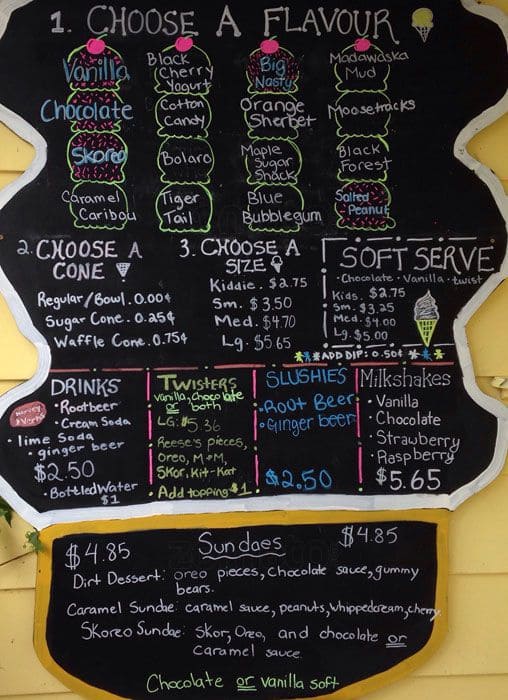 1. CHOOSE A FLAVOUR
Vanilla
Chocolate
Skoreo
Caramel
Caribou
Black
Cherry
Yogurt
Cotton
Candy
Bolaro
Tiger
Tail
Big
Nasty
Orange
Sherbet
Maple
Sugar
Shack
Blue
Bubblegum
Madawaska
Mud
Moosetracks
Black
Forest
Salted
Peanut
2. CHOOSE A
CONE
Regular/Bowl. 0.00¢
Sugar Cone. 0.25¢
Waffle Cone. 0.75¢
3. CHOOSE A
SIZE
Kiddie. $2.75
Sm. $3.50
Med. $4.70
Lg. $5.65
SOFT SERVE
· Chocolate · Vanilla · twist
Kids. $2.75
Sm. $3.25
Med. $4.00
Lg. $5.00
ADD DIP: 0.50¢
DRINKS
· Rootbeer
· Cream Soda
· lime Soda
· ginger beer
$2.50
· Bottled Water
$1
TWISTERS
vanilla, chocolate
or both
LG: $5.36
Reese's pieces,
Oreo, M+M,
SKor, Kit-Kat
· Add topping $1
SLUSHIES
· Root Beer
· Ginger beer
$2.50
Milkshakes
· Vanilla
· Chocolate
· Strawberry
· Raspberry
$5.65
$4.85 Sundaes $4.85
Dirt Dessert: oreo pieces, chocolate sauce, gummy
bears.
Caramel Sundae: caramel sauce, peanuts, whippedcream, cherry
Skoreo Sundae: Skor, Oreo, and chocolate or
caramel sauce
Chocolate or vanilla soft